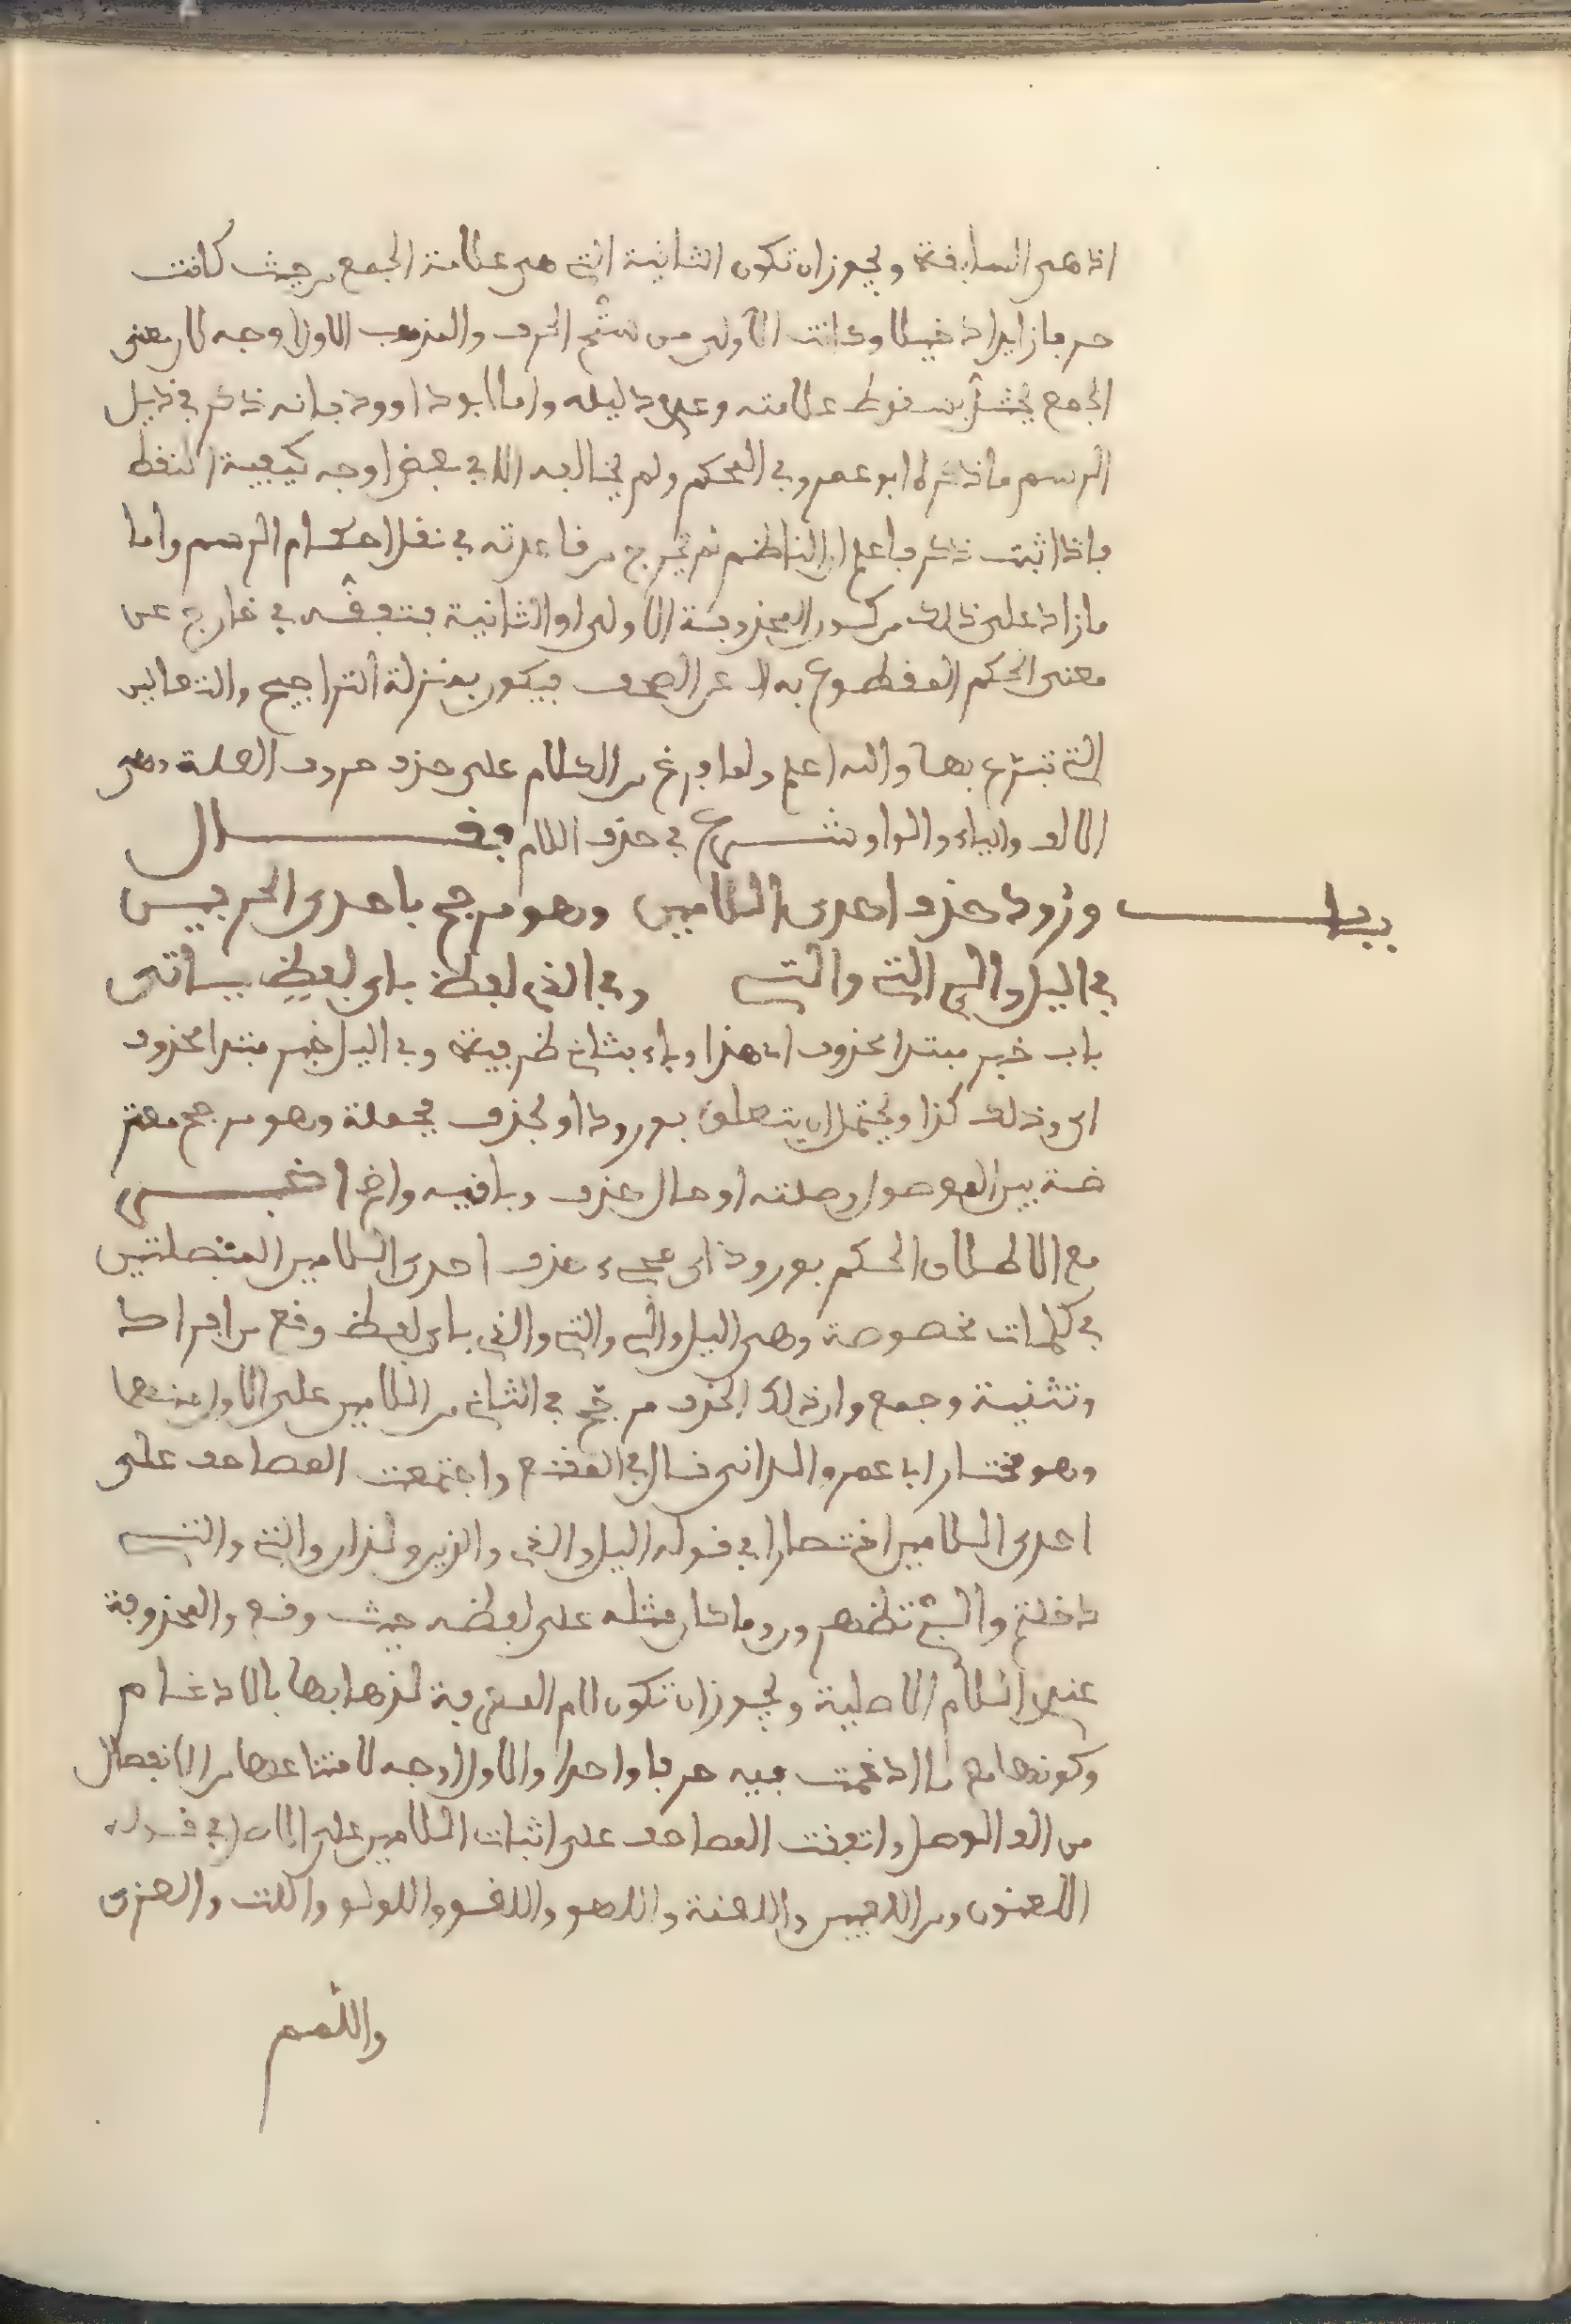 اذ هي السابقة ويجوز ان تكون الثانية التي هي علامة الجمع من حيث كانت
حرفا زايدا دخيلا وكانت الاولى من سنخ الحرف والمذهب الاول اوجه لان معنى
الجمع يختل بسقوط علامته وعدم دليله واما ابو داوود فانه ذكر في ذيل
الرسم ما ذكره ابو عمرو في المحكم ولم يخالفه الا في بعض اوجه كيفية النقط
فاذا ثبت ذكر فاعلم ان الناظم لم يخرج من قاعدته في نقل احكام الرسم واما
ما زاد على ذلك من كون المحذوفة الاولى او الثانية فتفقه في خارج عن
معنى الحكم المقطوع به لا عن المصحف فيكون بمنزلة التراجيح والتعاليل
التي تبرع بها والله اعلم ولما فرغ من الكلام على حذف حروف العلة وهي
الالف والياء والواو شرع في حذف اللام فقال
باب ورود حذف احدى اللامين وهو مرجح باحدى الحرفين
في اليل والئي التي والتي وفي الذي لفظ باي لفظ ياتي
باب خبر مبتدا محذوف اي هذا وباء بثان ظرفية وفي اليل خبر مبتدا محذوف
اي وذلك كذا ويحتمل ان يتعلق بورود او بحذف فجملة وهو مرجح معتر
ضة بين الموصول وصلته او حال حذف وباقيه واضح اخبر
مع الاطلاق الحكم بورود اي مجيء حذف احدى اللامين المتصلتين
في كلمات مخصوصة وهي اليل والئي والتي والذي باي لفظ وقع من افراد
وتثنية وجمع وان ذلك الحذف مرجح في الثاني من اللامين على الاول منهما
وهو مختار ابا عمرو الداني قال في المقنع واجتمعت المصاحف على
احدى اللامين اختصارا في قوله اليل والذي والذين والذان والتي والتي
دخلتم والئي تظهرون وما كان مثله على لفظه حيث وقع والمحذوفة
عندي اللام الاصلية ويجوز ان تكون لام المعرفة لذهابها بالادغام
وكونها مع ما ادغمت فيه حرفا واحدا والاول اوجه لامتناعها من الانفصال
من الف الوصل واتفقت المصاحف على اثبات اللامين على الاصل في قوله
اللعنون ومن اللعبين واللعنة واللهو واللغو واللولو واللت والعزى
واللمم